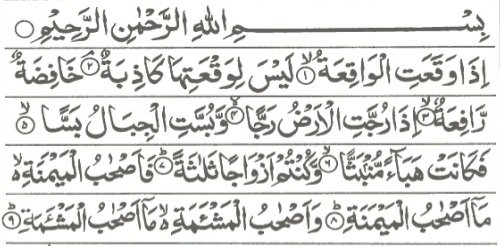 بِسْمِ اللّٰهِ الرَّحْمٰنِ الرَّحِيْمِ
اِذَا وَقَعَتِ الْوَاقِعَةُ ۙ﴿۱﴾ لَيْسَ لِوَقْعَتِهَا كَاذِبَةٌ ۘ﴿۲﴾ خَافِضَةٌ
رَّافِعَةٌ ۙ﴿۳﴾ اِذَا رُجَّتِ الْاَرْضُ رَجًّا ۙ﴿۴﴾ وَّبُسَّتِ الْجِبَالُ بَسًّا ۙ﴿۵﴾
فَكَانَتْ هَبَآءً مُّنْۢبَثًّا ۙ﴿۶﴾ وَّكُنْتُمْ اَزْوَاجًا ثَلٰثَةً ؕ﴿۷﴾ فَاَصْحٰبُ الْمَيْمَنَةِ ۙ
مَاۤ اَصْحٰبُ الْمَيْمَنَةِ ؕ﴿۸﴾ وَاَصْحٰبُ الْمَشْـَٔمَةِ ۙ مَاۤ اَصْحٰبُ الْمَشْـَٔمَةِ ؕ﴿۹﴾